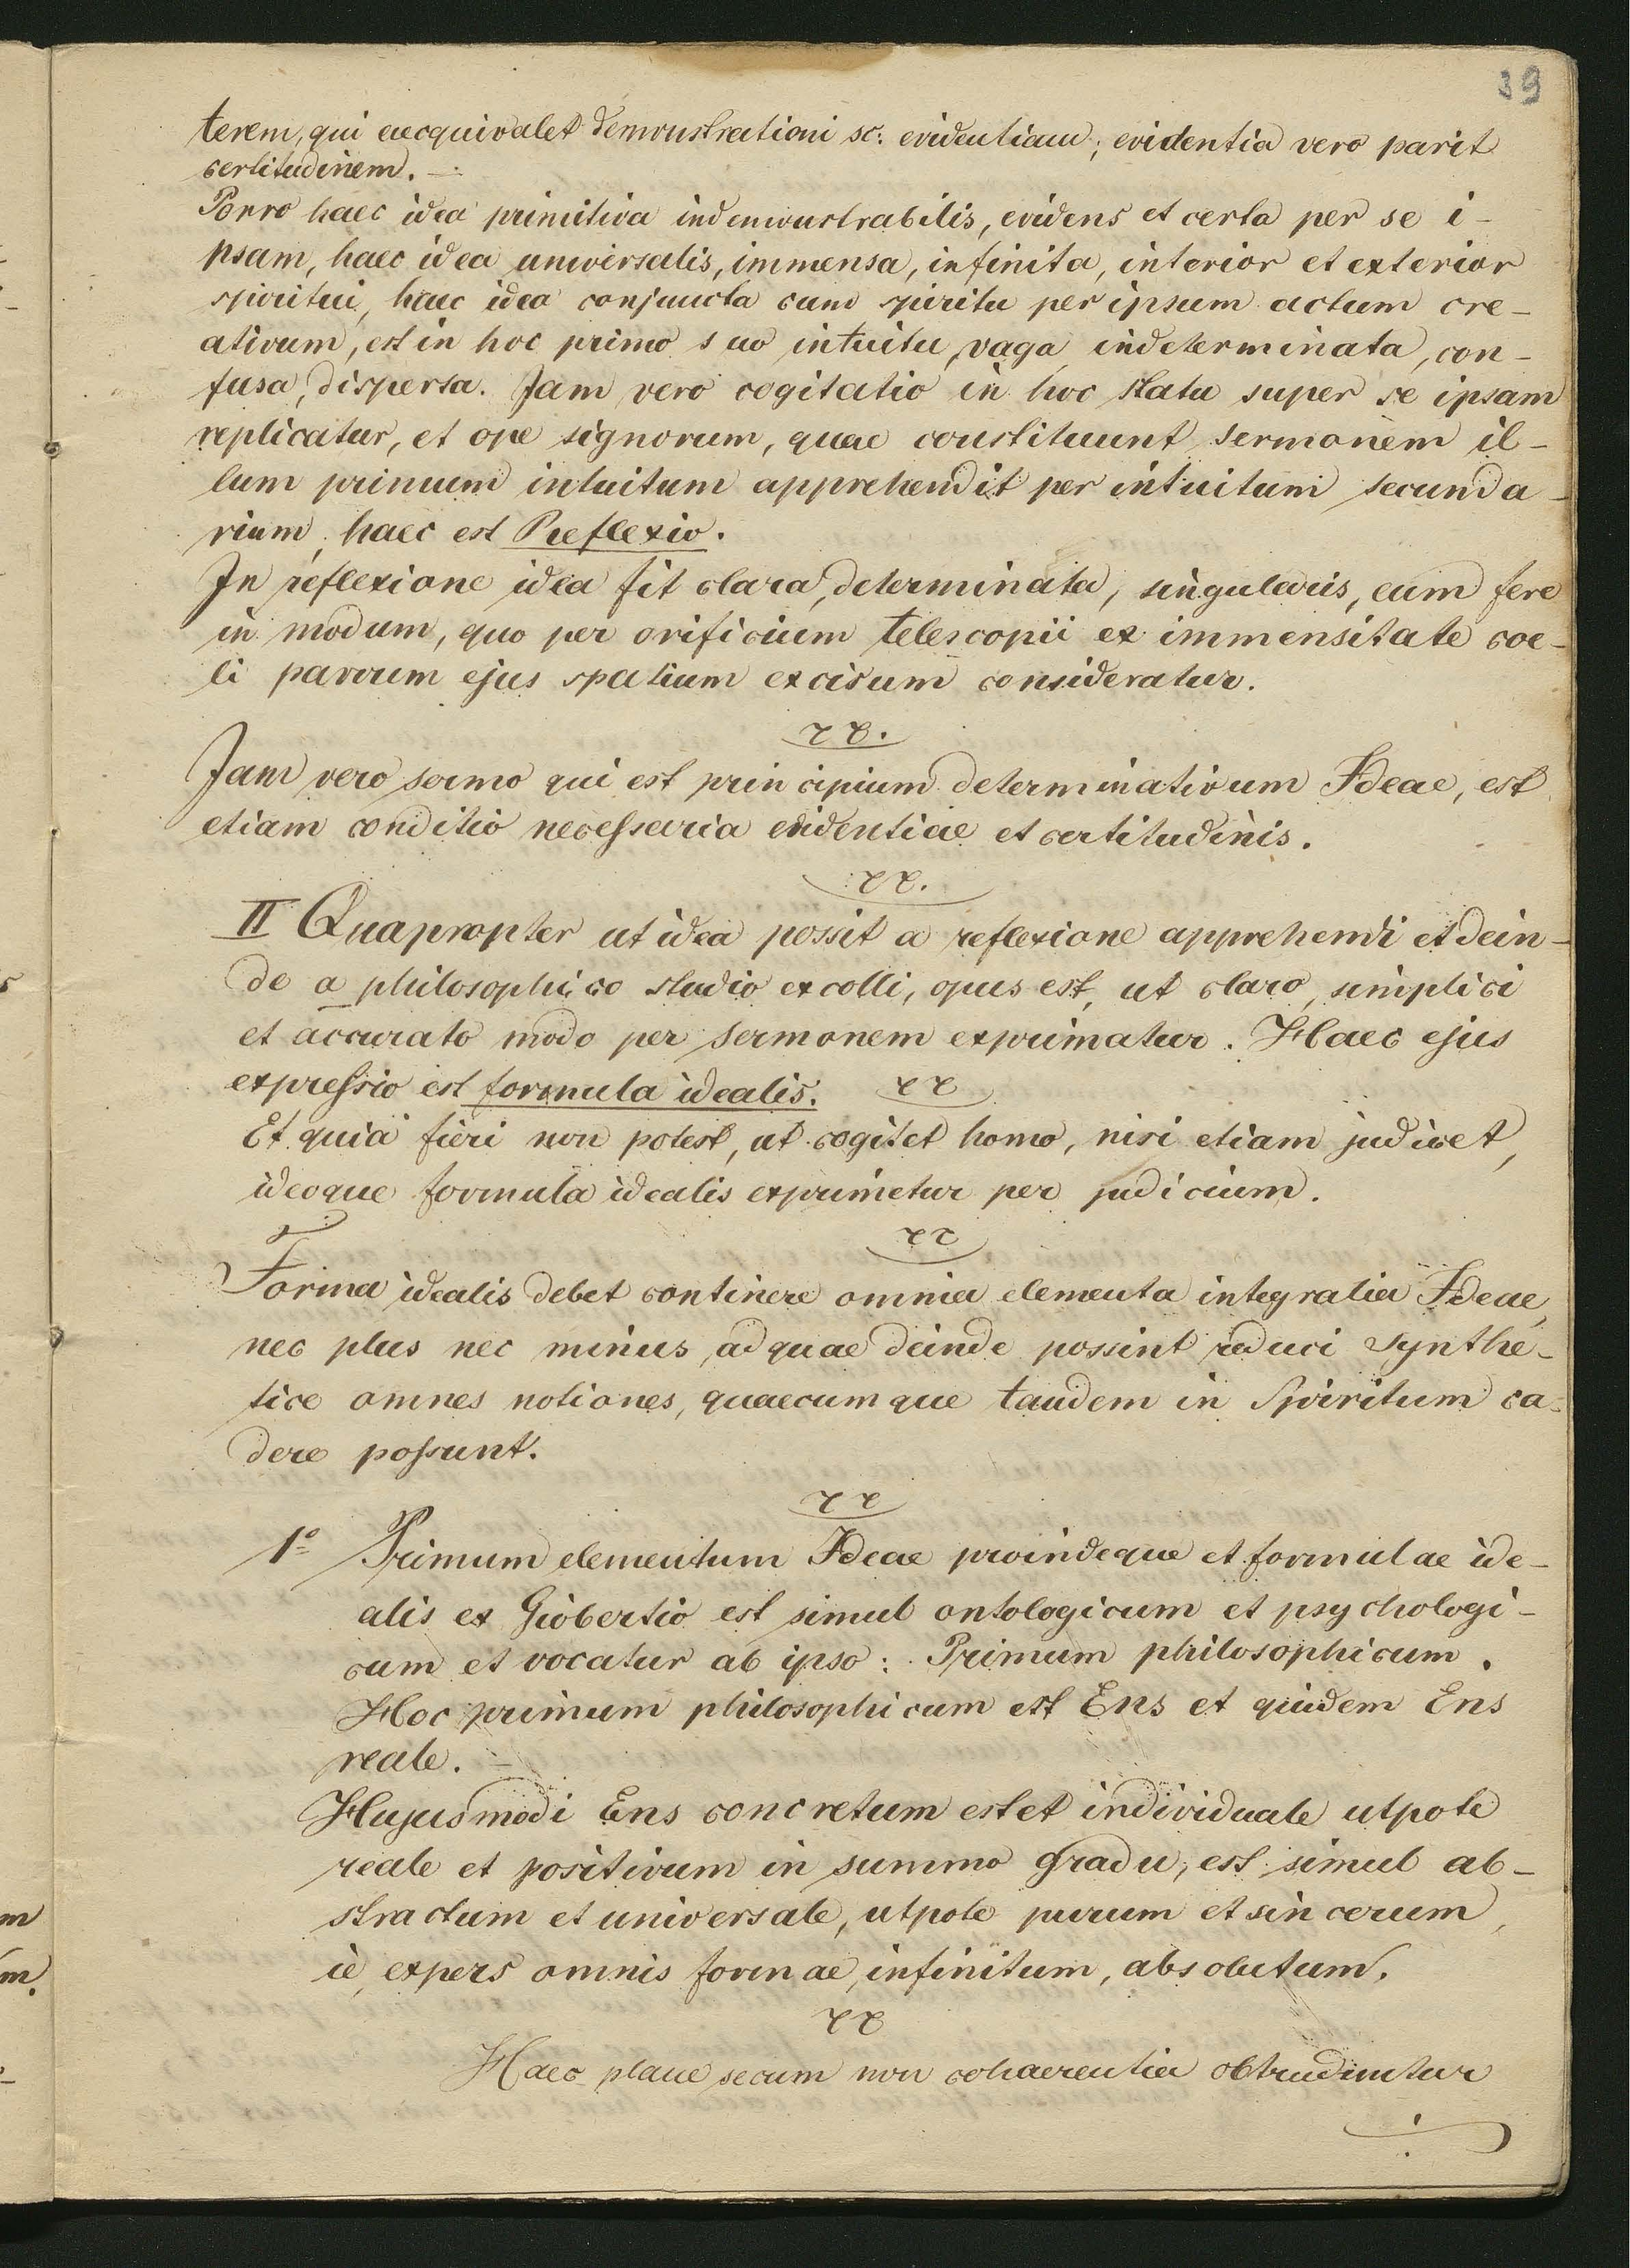 39
terem, qui aecquivalet demonstrationi sc: evidentiam; evidentia vero parit
certitudinem. –
Porro haec idea primitiva indemonstrabilis, evidens et certa per se i-
psam, haec idea universalis, immensa, infinita, interior et exterior
spiritui, haec idea conjuncta cum spiritu per ipsum actum cre-
ativum, est in hoc primo suo intuitu, vaga, indeterminata, con-
fusa, dispersa. Jam vero cogitatio in hoc statu super se ipsam
replicatur, et ope signorum, quae constituunt sermonem il-
lum primum intuitum apprehendit per intuitum secunda-
rium; haec est Reflexio.
In reflexione idea fit clara, determinata, singularis, eum fere
in modum, quo per orificium telescopii ex immensitate coe-
li parvum ejus spatium excisum consideratur.
Jam vero sermo qui est principium determinativum Ideae, est
etiam conditio necessaria evidentiae et certitudinis.
II Quapropter ut idea possit a reflexione apprehendi et dein-
de a philosophico studio excolli, opus est, ut claro, simplici
et accurato modo per sermonem exprimatur. Haec ejus
expressio est formula idealis.
Et quia fieri non potest, ut cogitet homo, nisi etiam judicet,
ideoque formula idealis exprimetur per judicium.
Forma idealis debet continere omnia elementa integralia Ideae,
nec plus nec minus, ad quae deinde possint reduci synthe-
tice omnes notiones, quaecumque tandem in Spiritum ca-
dere possunt.
1º Primum elementum Ideae proindeque et formulae ide-
alis ex Giobertio est simul ontologicum et psychologi-
cum et vocatur ab ipso: Primum philosophicum.
Hoc primum philosophicum est Ens et quidem Ens
reale. –
Hujusmodi Ens concretum est et individuale utpote
reale et positivum in summo gradu, est simul ab-
stractum et universale, utpote purum et sincerum,
ie, expers omnis formae, infinitum, absolutum.
Haec plane secum non cohaerentia obtruduntur